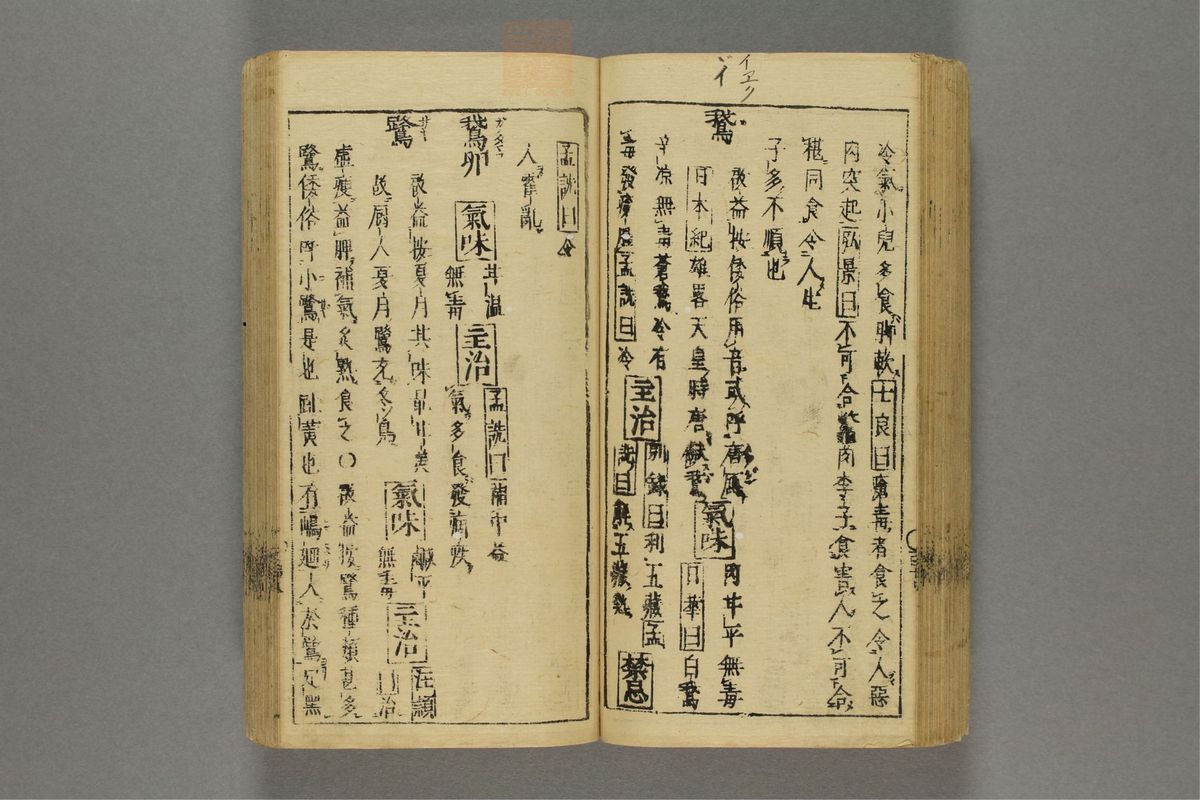 イヱノ
冷氣小兒多食脚軟士良曰瘡毒者食之令人惡
肉突起弘景曰不可合鼈肉李子食害人不可合
椹同食令人生
子多不順也
鵞
改益按倭俗用音或呼唐鳫
日本紀雄畧天皇時唐獻鵞
氣味
肉甘平無毒
日華曰白鵞
辛凉無毒蒼鵞冷有
毒發瘡
孟詵曰冷
主治
別錄曰利五藏孟
詵曰解五藏熱
禁忌
孟詵曰令
人霍亂
鵞卵
氣味
甘温
無毒
主治
孟詵曰補中益
氣多食發
鷺
サギ
改益按夏月其味最甘美
故厨人夏月鷺充冬鳥
氣味
鹹平
無毒
主治
汪頴
曰治
虚瘦益脾補氣炙熟食之○改益按鷺種類甚多
鷺倭俗呼小鷺是也
黄也有
人
黑